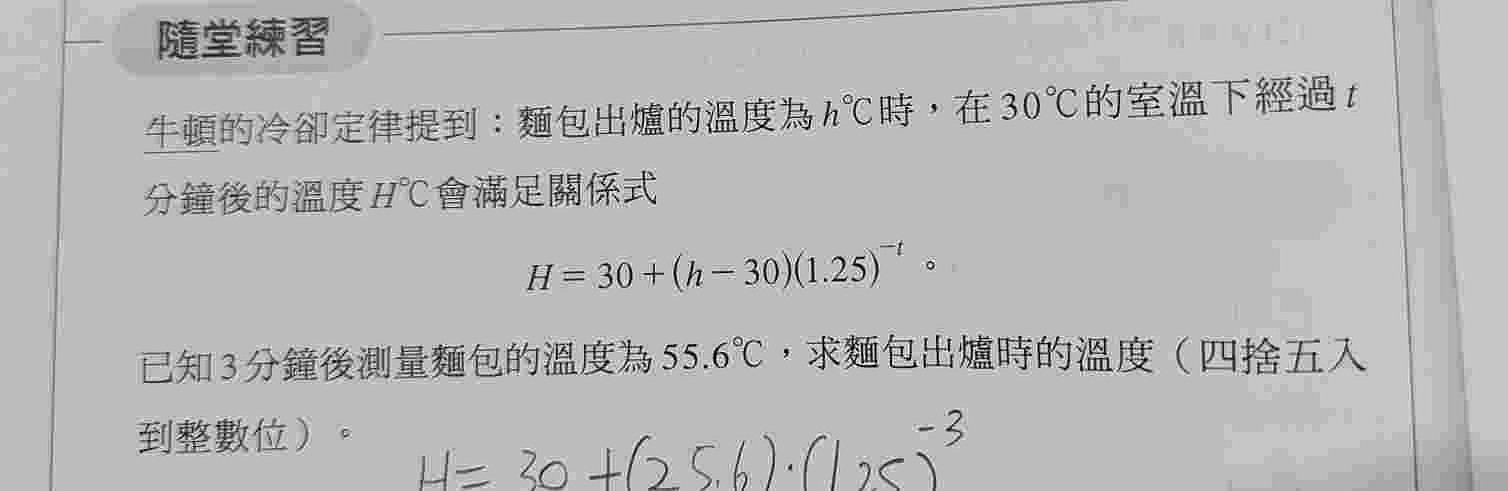 隨堂練習
牛頓的冷卻定律提到：麵包出爐的溫度為h℃時，在30℃的室溫下經過t
分鐘後的溫度H℃會滿足關係式
H = 30 + (h − 30)(1.25)⁻ᵗ 。
已知3分鐘後測量麵包的溫度為55.6℃，求麵包出爐時的溫度（四捨五入
到整數位）。
H = 30 + (25.6)·(1.25)⁻³